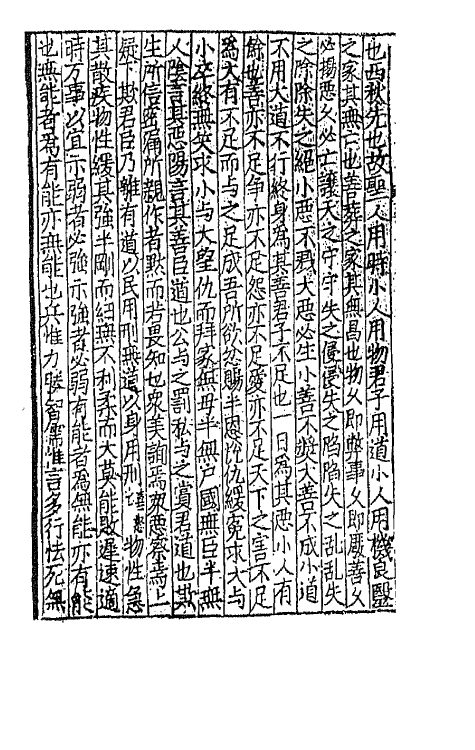 也西秋先也故聖人用時小人用物君子用道小人用機良毉
之家其無亡也善葬之家其無昌也物久即弊事久即厭善久
必揚惡久必亡讓天之守守失之優優失之陷陷失之乱乱失
之除除失之絕小惡不畏大惡必生小善不獎大善不成小道
不用大道不行終身為其善君子不足也一日為其惡小人有
餘也善亦不足爭亦不足怨亦不足愛亦不足天下之害不足
為大有不足而与之足成吾所欲忿賜半恩訟仇緩冤求大与
小卒終無笑求小与大望仇而拜家無毋半無户國無臣半無
人陰言其惡陽言其善臣道也公与之罰私与之賞君道也欺
生所信痛所親作者默而若畏知也衆美詢焉衆惡察焉上
疑下欺君臣乃離有道以民用刑無道以身用刑物性急
其散疾物性緩其強半剛而紐無不利柔而大莫能敗遲速適
時万事以宜示弱者必強示強者必弱有能者為無能亦有能
也無能者為有能亦無能也兵惟力勝智儒惟言多行怯死無